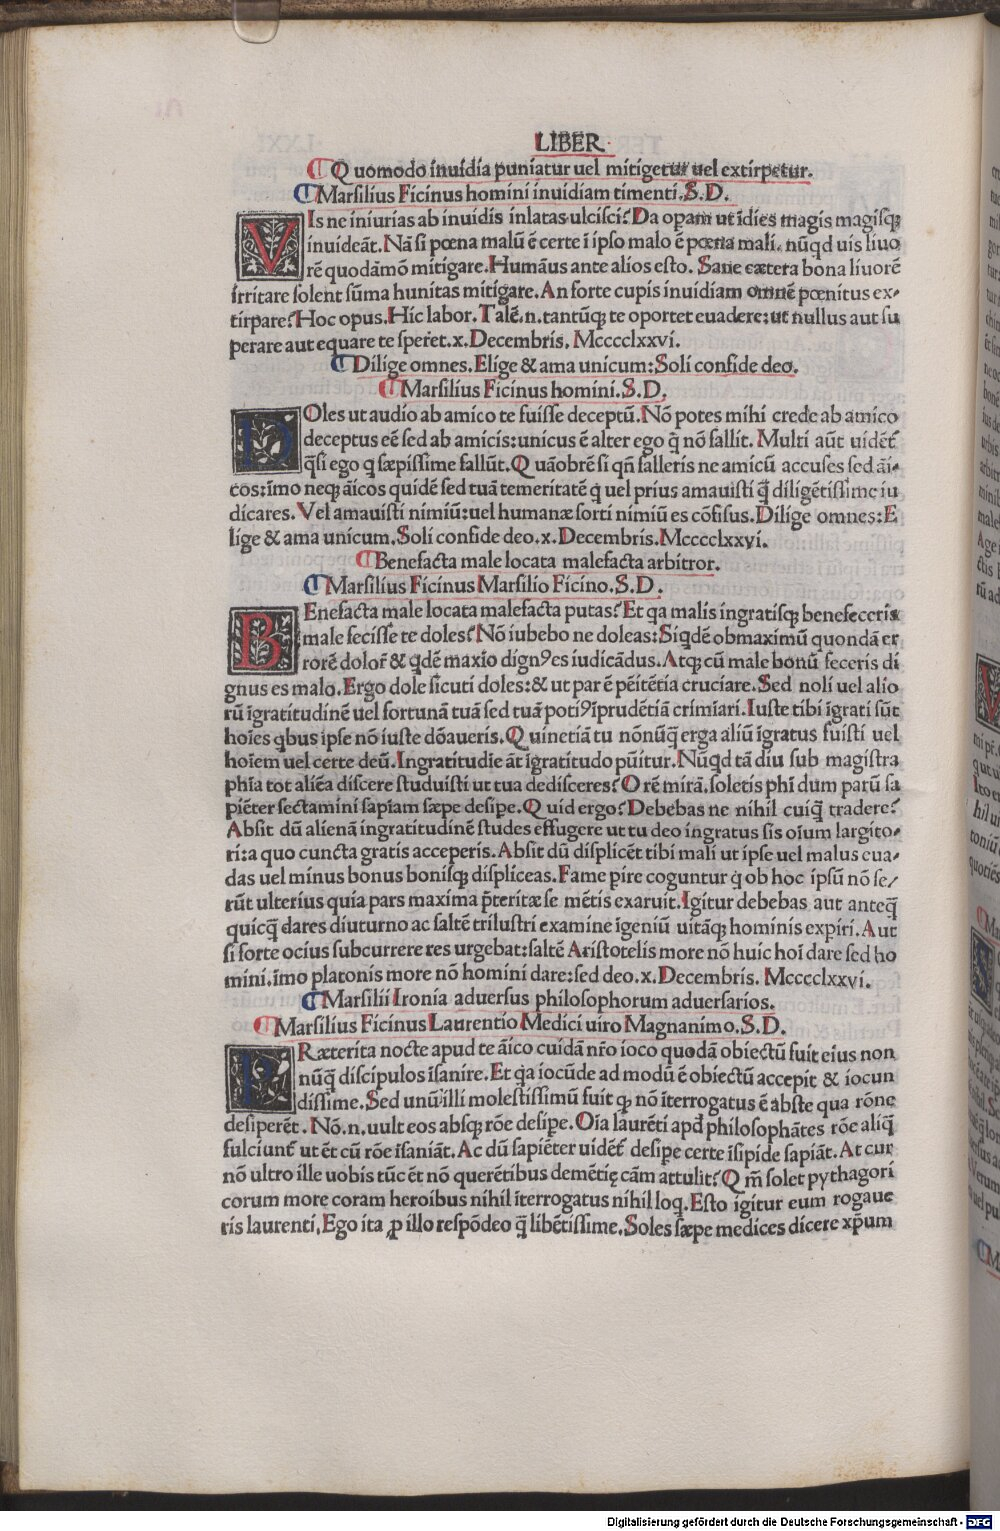 LIBER
¶Quomodo inuidia puniatur uel mitigetur uel extirpetur.
¶Marsilius Ficinus homini inuidiam timenti.S.D.
VIs ne iniurias ab inuidis inlatas ulcisci? Da opam ut īdies magis magisq;
inuideāt. Nā si pœna malū ē certe ī ipso malo ē pœna mali. nūqd uis liuo
rē quodāmō mitigare. Humāus ante alios esto. Sane cætera bona liuorē
irritare solent sūma hunitas mitigare. An forte cupis inuidiam omnē pœnitus ex-
tirpare? Hoc opus. Hic labor. Talē.n.tantūq; te oportet euadere: ut nullus aut su
perare aut equare te speret.x.Decembris. Mcccclxxvi.
¶Dilige omnes. Elige & ama unicum: Soli confide deo.
¶Marsilius Ficinus homini.S.D.
DOles ut audio ab amico te fuisse deceptū. Nō potes mihi crede ab amico
deceptus eē sed ab amicis: unicus ē alter ego q̄ nō fallit. Multi aūt uidēt
q̄si ego q sæpissime fallūt. Quāobrē si qñ falleris ne amicū accuses sed āi-
cos: īmo neq; āicos quidē sed tuā temeritatē q uel prius amauisti q̄ diligētissime iu
dicares. Vel amauisti nimiū: uel humanæ sorti nimiū es cōfisus. Dilige omnes: E
lige & ama unicum. Soli confide deo.x.Decembris. Mcccclxxvi.
¶Benefacta male locata malefacta arbitror.
¶Marsilius Ficinus Marsilio Ficino.S.D.
BEnefacta male locata malefacta putas? Et qa malis ingratisq; benefeceris
male fecisse te doles? Nō iubebo ne doleas: Siqdē obmaximū quondā er
rorē dolor̄ & qdē maxīo dignꝯ es iudicādus. Atq; cū male bonū feceris di
gnus es malo. Ergo dole sicuti doles: & ut par ē pēitētia cruciare. Sed noli uel alio
rū īgratitudinē uel fortunā tuā sed tuā potiꝯ īprudētiā crimīari. Iuste tibi īgrati sūt
hoīes qbus ipse nō iuste dōaueris. Quinetiā tu nōnūq̄ erga aliū īgratus fuisti uel
hoīem uel certe deū. Ingratitudīe āt īgratitudo pūitur. Nūqd tā diu sub magistra
phīa tot aliēa discere studuisti ut tua dedisceres? O rē mirā. soletis phī dum parū sa
piēter sectamini sapīam sæpe desipe. Quid ergo? Debebas ne nihil cuiq̄ tradere?
Absit dū alienā ingratitudinē studes effugere ut tu deo ingratus sis oīum largito-
ri: a quo cuncta gratis acceperis. Absit dū displicēt tibi mali ut ipse uel malus eua-
das uel minus bonus bonisq; displiceas. Fame pire coguntur q ob hoc ipsū nō se/
rūt ulterius quia pars maxima p̄teritæ se mētis exaruit. Igitur debebas aut anteq̄
quicq̄ dares diuturno ac saltē trilustri examine īgeniū uitāq; hominis expiri. Aut
si forte ocius subcurrere res urgebat: saltē Aristotelis more nō huic hoī dare sed ho
mini. īmo platonis more nō homini dare: sed deo.x.Decembris. Mcccclxxvi.
¶Marsilii Ironia aduersus philosophorum aduersarios.
¶Marsilius Ficinus Laurentio Medici uiro Magnanimo.S.D.
PRæterita nocte apud te āico cuidā nr̄o ioco quodā obiectū fuit eius non
nūq̄ discipulos īsanire. Et qa iocūde ad modū ē obiectū accepit & iocun
dissime. Sed unū illi molestissimū fuit q nō īterrogatus ē abste qua rōne
desiperēt. Nō.n.uult eos absq; rōe desipe. Oīa laurēti apd philosophātes rōe aliq̄
fulciunt ut ēt cū rōe īsaniāt. Ac dū sapiēter uidēt desipe certe īsipide sapiāt. At cur
nō ultro ille uobis tūc ēt nō querētibus demētię cām attulit? Qm̄ solet pythagori
corum more coram heroibus nihil īterrogatus nihil loq. Esto igitur eum rogaue
ris laurenti. Ego ita ꝓ illo respōdeo q̄ libētissime. Soles sæpe medices dicere xp̄um
Digitalisierung gefördert durch die Deutsche Forschungsgemeinschaft - DFG